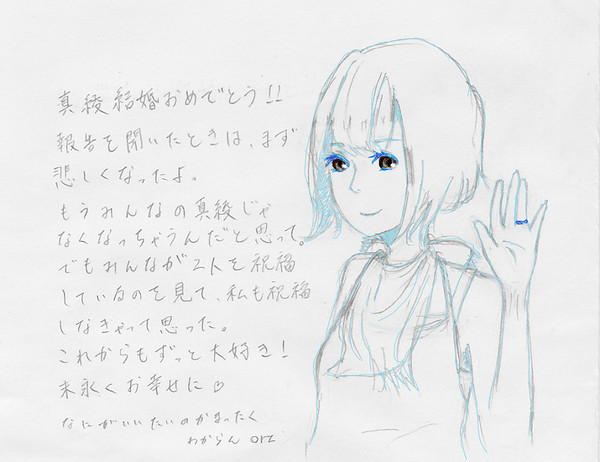 真綾結婚おめでとう!!
報告を聞いたときは、まず
悲しくなったよ。
もうみんなの真綾じゃ
なくなっちゃうんだと思って。
でもみんなが2人を祝福
しているのを見て、私も祝福
しなきゃって思った。
これからもずっと大好き!
末永くお幸せに♡
なにがいいたいのかまったく
わからん orz